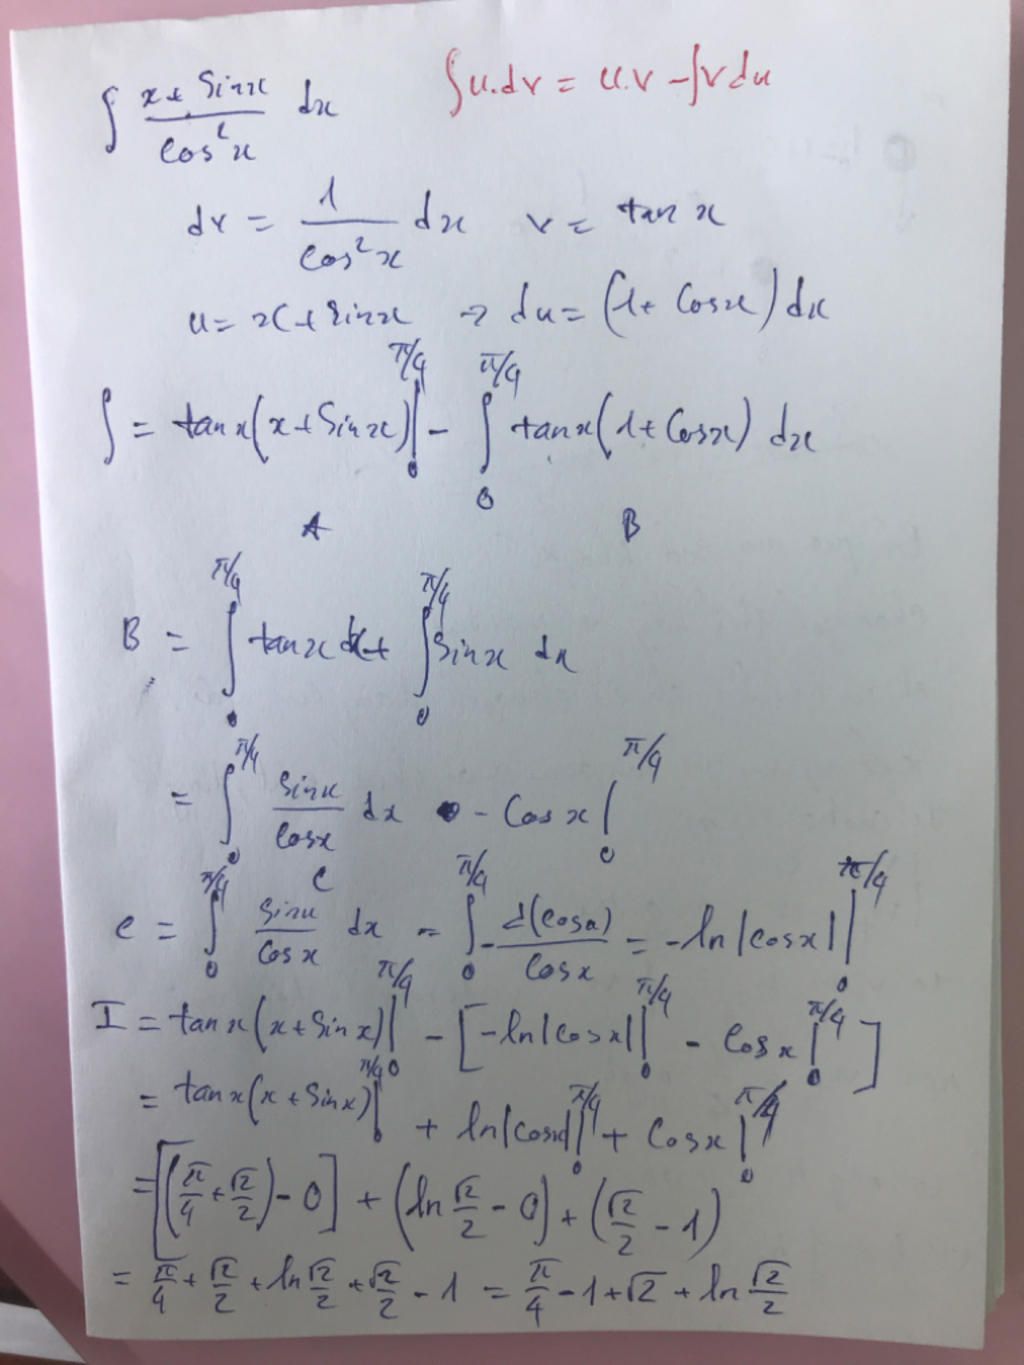 ∫ (x + Sinx)/(Cos²x) dx   ∫u.dv = u.v - ∫vdu
dv = 1/(Cos²x) dx   v = tan x
u = x + Sinx → du = (1 + Cosx) dx
∫ = tanx(x + Sinx)|₀^{π/4} - ∫₀^{π/4} tanx(1 + Cosx) dx
A   B
B = ∫₀^{π/4} tanx dx + ∫₀^{π/4} Sinx dx
= ∫₀^{π/4} Sinx/Cosx dx - Cosx|₀^{π/4}
C
C = ∫₀^{π/4} Sinx/Cosx dx = ∫₀^{π/4} - d(Cosx)/Cosx = -ln|cosx| |₀^{π/4}
I = tanx(x + Sinx)|₀^{π/4} - [-ln|Cosx| |₀^{π/4} - Cosx|₀^{π/4}]
= tanx(x + Sinx)|₀^{π/4} + ln|cosx| |₀^{π/4} + Cosx|₀^{π/4}
= [(π/4 + √2/2) - 0] + (ln √2/2 - 0) + (√2/2 - 1)
= π/4 + √2/2 + ln √2/2 + √2/2 - 1 = π/4 - 1 + √2 + ln √2/2